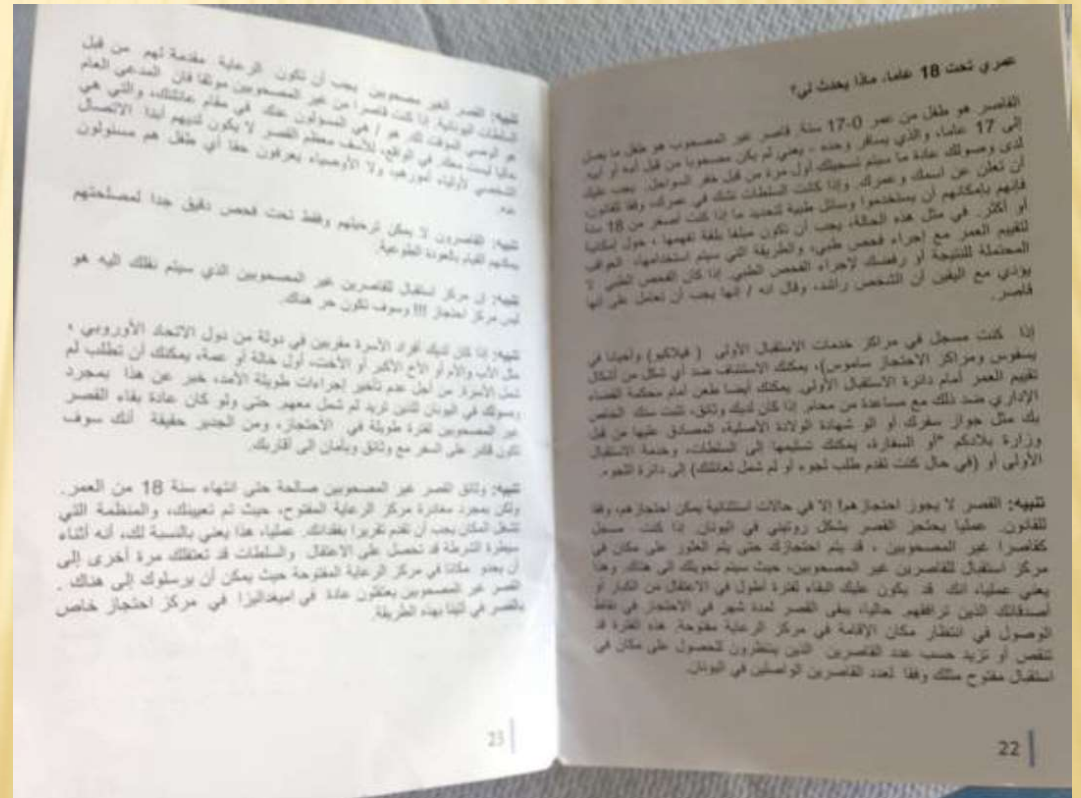 عمري تحت 18 عاما، ماذا يحدث لي؟
القاصر هو طفل من عمر 0-17 سنة. قاصر غير المصحوب هو طفل ما يصل
إلى 17 عاما، والذي يسافر وحده - يعني لم يكن مصحوبا من قبل أبيه أو أمه.
لدى وصولك عادة ما سيتم تسجيلك أول مرة من قبل خفر السواحل. يجب عليك
أن تعلن عن اسمك وعمرك. وإذا كانت السلطات تشك في عمرك، وفقا للقانون،
فإنهم بإمكانهم أن يستخدموا وسائل طبية لتحديد ما إذا كنت أصغر من 18 سنة
أو أكثر. في مثل هذه الحالة، يجب أن تكون مبلغا بلغة تفهمها ، حول إمكانية
لتقييم العمر مع إجراء فحص طبي، والطريقة التي سيتم استخدامها، العواقب
المحتملة للنتيجة أو رفضك لإجراء الفحص الطبي. إذا كان الفحص الطبي لا
يؤدي مع اليقين أن الشخص راشد، وقال انه / إنها يجب أن تعامل على أنها
قاصر.
إذا كنت مسجل في مراكز خدمات الاستقبال الأولى ( فيلاكيو) وأحيانا في
يسفوس ومراكز الاحتجاز ساموس)، يمكنك الاستئناف ضد أي شكل من أشكال
تقييم العمر أمام دائرة الاستقبال الأولى. يمكنك أيضا طعن أمام محكمة القضاء
الإداري ضد ذلك مع مساعدة من محام. إذا كان لديك وثائق، تثبت سنك الخاص
بك مثل جواز سفرك أو الو شهادة الولادة الأصلية، المصادق عليها من قبل
وزارة بلادكم "أو السفارة، يمكنك تسليمها إلى السلطات، وخدمة الاستقبال
الأولى أو (في حال كنت تقدم طلب لجوء أو لم شمل لعائلتك) إلى دائرة اللجوء.
تنبيه: القصر لا يجوز احتجازهم! إلا في حالات استثنائية يمكن احتجازهم، وفقا
للقانون. عمليا يحتجز القصر بشكل روتيني في اليونان. إذا كنت مسجل
كقاصرا غير المصحوبين ، قد يتم احتجازك حتى يتم العثور على مكان في
مركز استقبال للقاصرين غير المصحوبين، حيث سيتم تحويلك إلى هناك. وهذا
يعني عمليا، انك قد يكون عليك البقاء لفترة أطول في الاعتقال من الكبار أو
أصدقائك الذين ترافقهم. حاليا، يبقى القصر لمدة شهر في الاحتجاز في نقاط
الوصول في انتظار مكان الإقامة في مركز الرعاية مفتوحة. هذه الفترة قد
تنقص أو تزيد حسب عدد القاصرين الذين ينتظرون للحصول على مكان في
استقبال مفتوح مثلك وفقا لعدد القاصرين الواصلين في اليونان.
22
تنبيه: القصر الغير مصحوبين يجب أن تكون الرعاية مقدمة لهم من قبل
السلطات اليونانية. إذا كنت قاصرا من غير المصحوبين موثقا فان المدعي العام
هو الوصي الموقت لك هو / هي المسؤلون عنك في مقام عائلتك، والتي هي
حاليا ليست معك. في الواقع، للأسف معظم القصر لا يكون لديهم أبدا الاتصال
الشخصي لأولياء أمورهم، ولا الأوصياء يعرفون حقا أي طفل هم مسئولون
عنه.
تنبيه: القاصرون لا يمكن ترحيلهم وفقط تحت فحص دقيق جدا لمصلحتهم
يمكنهم القيام بالعودة الطوعية.
تنبيه: ن مركز استقبال للقاصرين غير المصحوبين الذي سيتم نقلك اليه هو
ليس مركز احتجاز !!! وسوف تكون حر هناك.
تنبيه: إذا كان لديك أفراد الأسرة مقربين في دولة من دول الاتحاد الأوروبي ،
مثل الأب والأم أو الأخ الأكبر أو الأخت، أول خالة أو عمة، يمكنك أن تطلب لم
شمل الأسرة. من أجل عدم تأخير إجراءات طويلة الأمد، خبر عن هذا بمجرد
وصولك في اليونان للذين تريد لم شمل معهم. حتى ولو كان عادة بقاء القصر
غير المصحوبين لفترة طويلة في الاحتجاز، ومن الجدير حقيقة أنك سوف
تكون قادر على السفر مع وثائق وبأمان الى أقاربك.
تنبيه: وثائق القصر غير المصحوبين صالحة حتى انتهاء سنة 18 من العمر.
ولكن بمجرد مغادرة مركز الرعاية المفتوح، حيث تم تعيينك، والمنظمة التي
تشغل المكان يجب أن تقدم تقريرا بفقدانك. عمليا، هذا يعني بالنسبة لك، أنه أثناء
سيطرة الشرطة قد تحصل على الاعتقال والسلطات قد تعتقلك مرة أخرى إلى
أن يجدو مكانا في مركز الرعاية المفتوحة حيث يمكن أن يرسلوك إلى هناك .
القصر غير المصحوبين يعتقلون عادة في اميغداليزا في مركز احتجاز خاص
بالقصر في أثينا بهذه الطريقة.
23